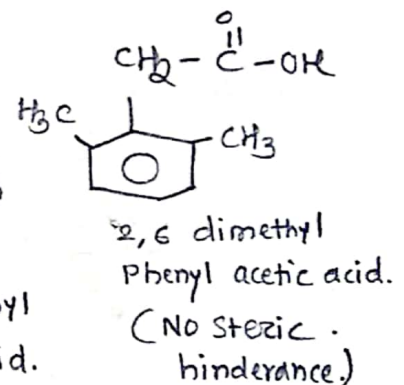 O
CH2 - C - OH
H3C
CH3
2, 6 dimethyl
Phenyl acetic acid.
(No Steric .
hinderance.)
yl
id.